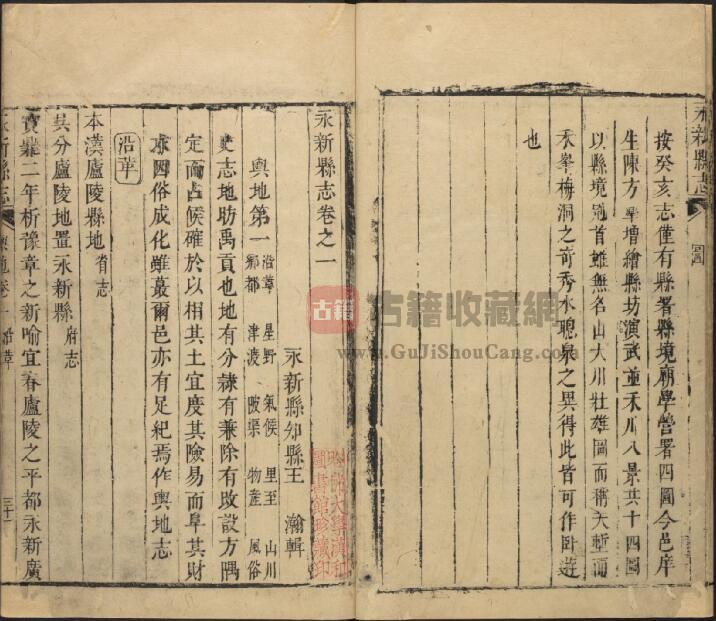 永新縣志
圖
按癸亥志僅有縣署縣境廟學營署四圖今邑庠
生陳方 增繪縣坊演武並禾川八景共十四圖
以縣境 首雖無名山大川壯雄圖而稱天塹而
禾峯梅洞之奇秀水聰泉之異得此皆可作臥遊
也
永新縣志卷之一
永新縣知縣王 瀚輯
輿地第一 沿革 星野 氣候 里至 山川
鄉都 津渡 陂渠 物產 風俗
史志地昉禹貢也地有分隸有兼除有改設方隅
定而占候確於以相其土宜度其險易而阜其財
求因俗成化雖蕞爾邑亦有足紀焉作輿地志
沿革
本漢廬陵縣地省志
吳分廬陵地置永新縣府志
寶鼎二年析豫章之新喻宜春廬陵之平都永新廣
永新縣志
輿地卷一 沿革
三十一
哈佛大學漢和
圖書館珍藏印
古籍
古籍收藏網
www.GuJiShouCang.com